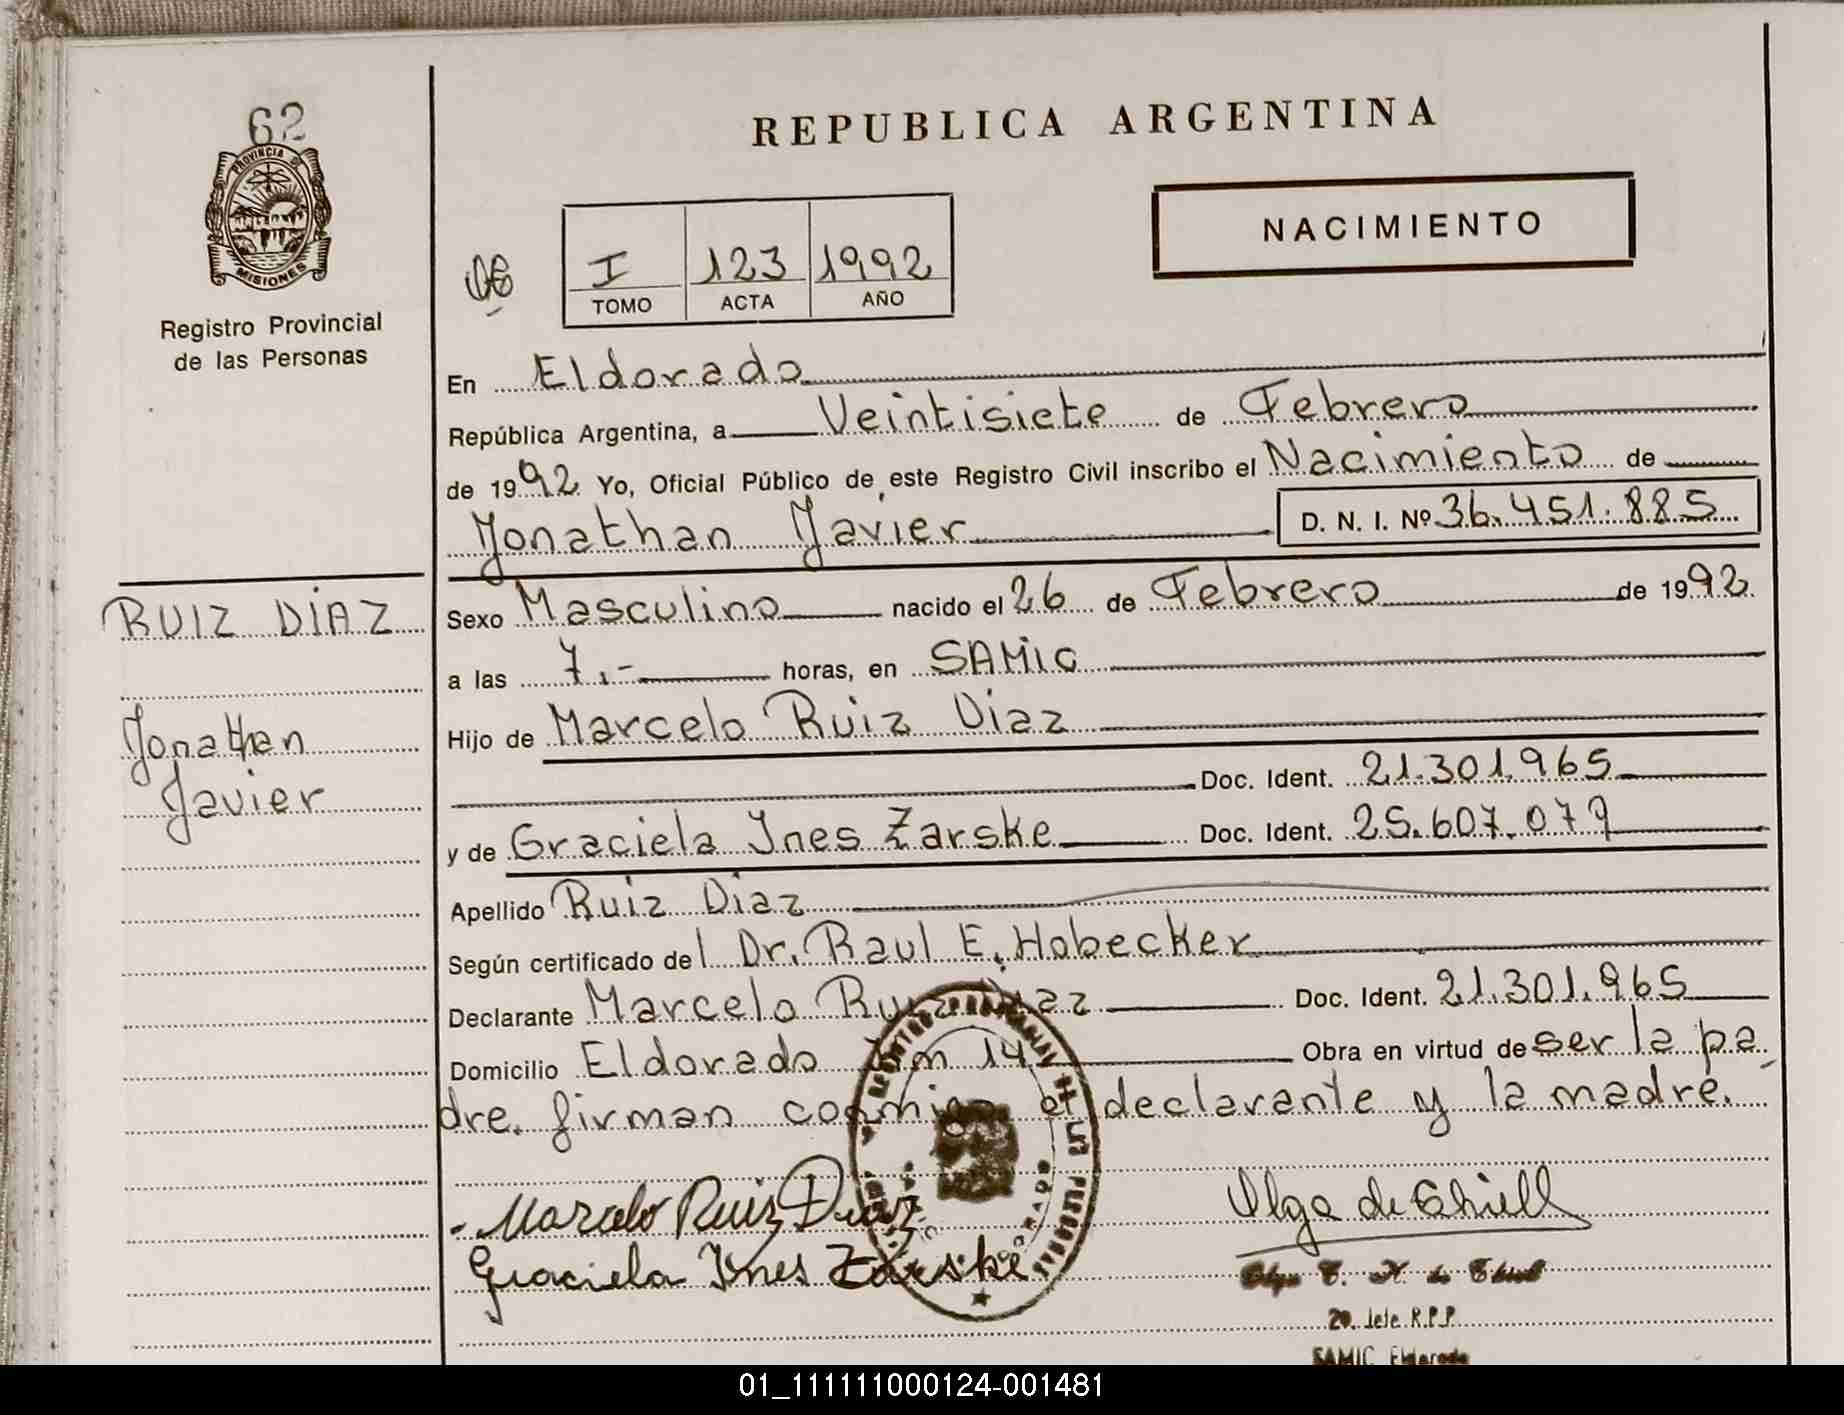 62
PROVINCIA DE
MISIONES
Registro Provincial
de las Personas
REPUBLICA ARGENTINA
NACIMIENTO
I 123 1992
TOMO ACTA AÑO
En Eldorado
República Argentina, a Veintisiete de Febrero
de 1992 Yo, Oficial Público de este Registro Civil inscribo el Nacimiento de
Jonathan Javier D. N. I. Nº 36.451.885
RUIZ DIAZ
Jonathan
Javier
Sexo Masculino nacido el 26 de Febrero de 1992
a las 7.- horas, en SAMIC
Hijo de Marcelo Ruiz Diaz
Doc. Ident. 21.301.965
y de Graciela Ines Zarske Doc. Ident. 25.607.079
Apellido Ruiz Diaz
Según certificado del Dr. Raul E. Hobecker
Declarante Marcelo Ruiz Diaz Doc. Ident. 21.301.965
Domicilio Eldorado Km 14 Obra en virtud de ser la pa
dre. firman conmigo el declarante y la madre.
Marcelo Ruiz Diaz
Graciela Ines Zarske
Olga de Thiell
2º. Jefe R.P.P.
SAMIC Eldorado
01_111111000124-001481